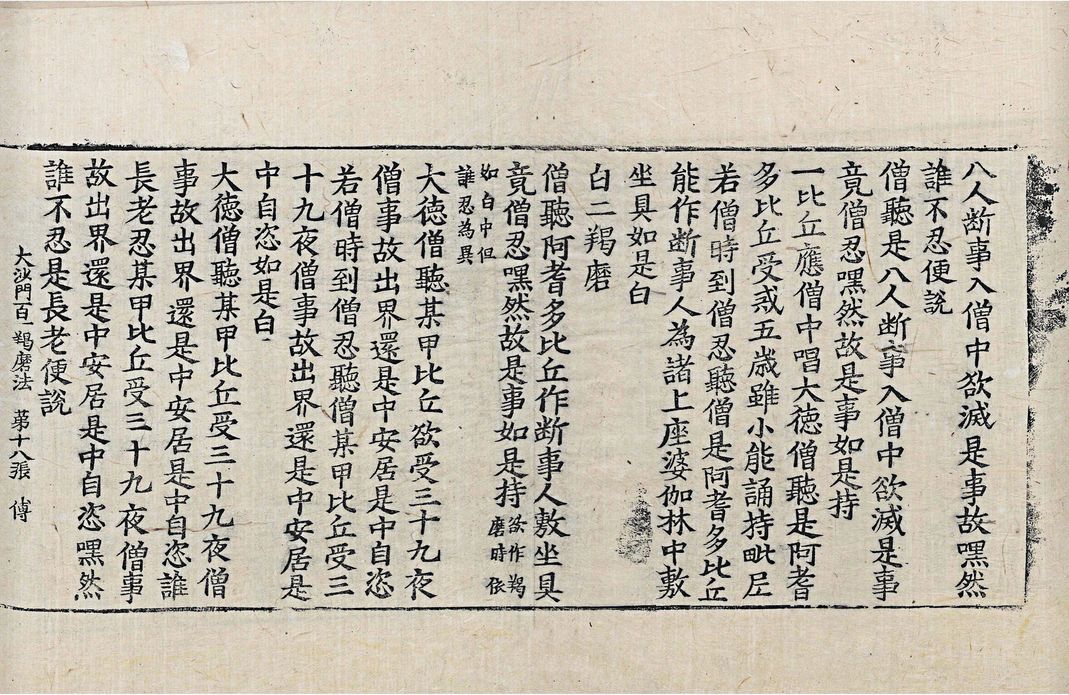 八人断事入僧中欲滅是事故嘿然
誰不忍便說
僧聽是八人断事入僧中欲滅是事
竟僧忍嘿然故是事如是持
一比丘應僧中唱大德僧聽是阿耆
多比丘受戒五歲雖小能誦持毗尼
若僧時到僧忍聽僧是阿耆多比丘
能作断事人為諸上座婆伽林中敷
坐具如是白
白二羯磨
僧聽阿耆多比丘作断事人敷坐具
竟僧忍嘿然故是事如是持欲作羯磨時依
如白中但誰忍為異
大德僧聽某甲比丘欲受三十九夜
僧事故出界還是中安居是中自恣
若僧時到僧忍聽僧某甲比丘受三
十九夜僧事故出界還是中安居是
中自恣如是白
大德僧聽某甲比丘受三十九夜僧
事故出界還是中安居是中自恣誰
長老忍某甲比丘受三十九夜僧事
故出界還是中安居是中自恣嘿然
誰不忍是長老便說
大沙門百一羯磨法 苐十八張 傅